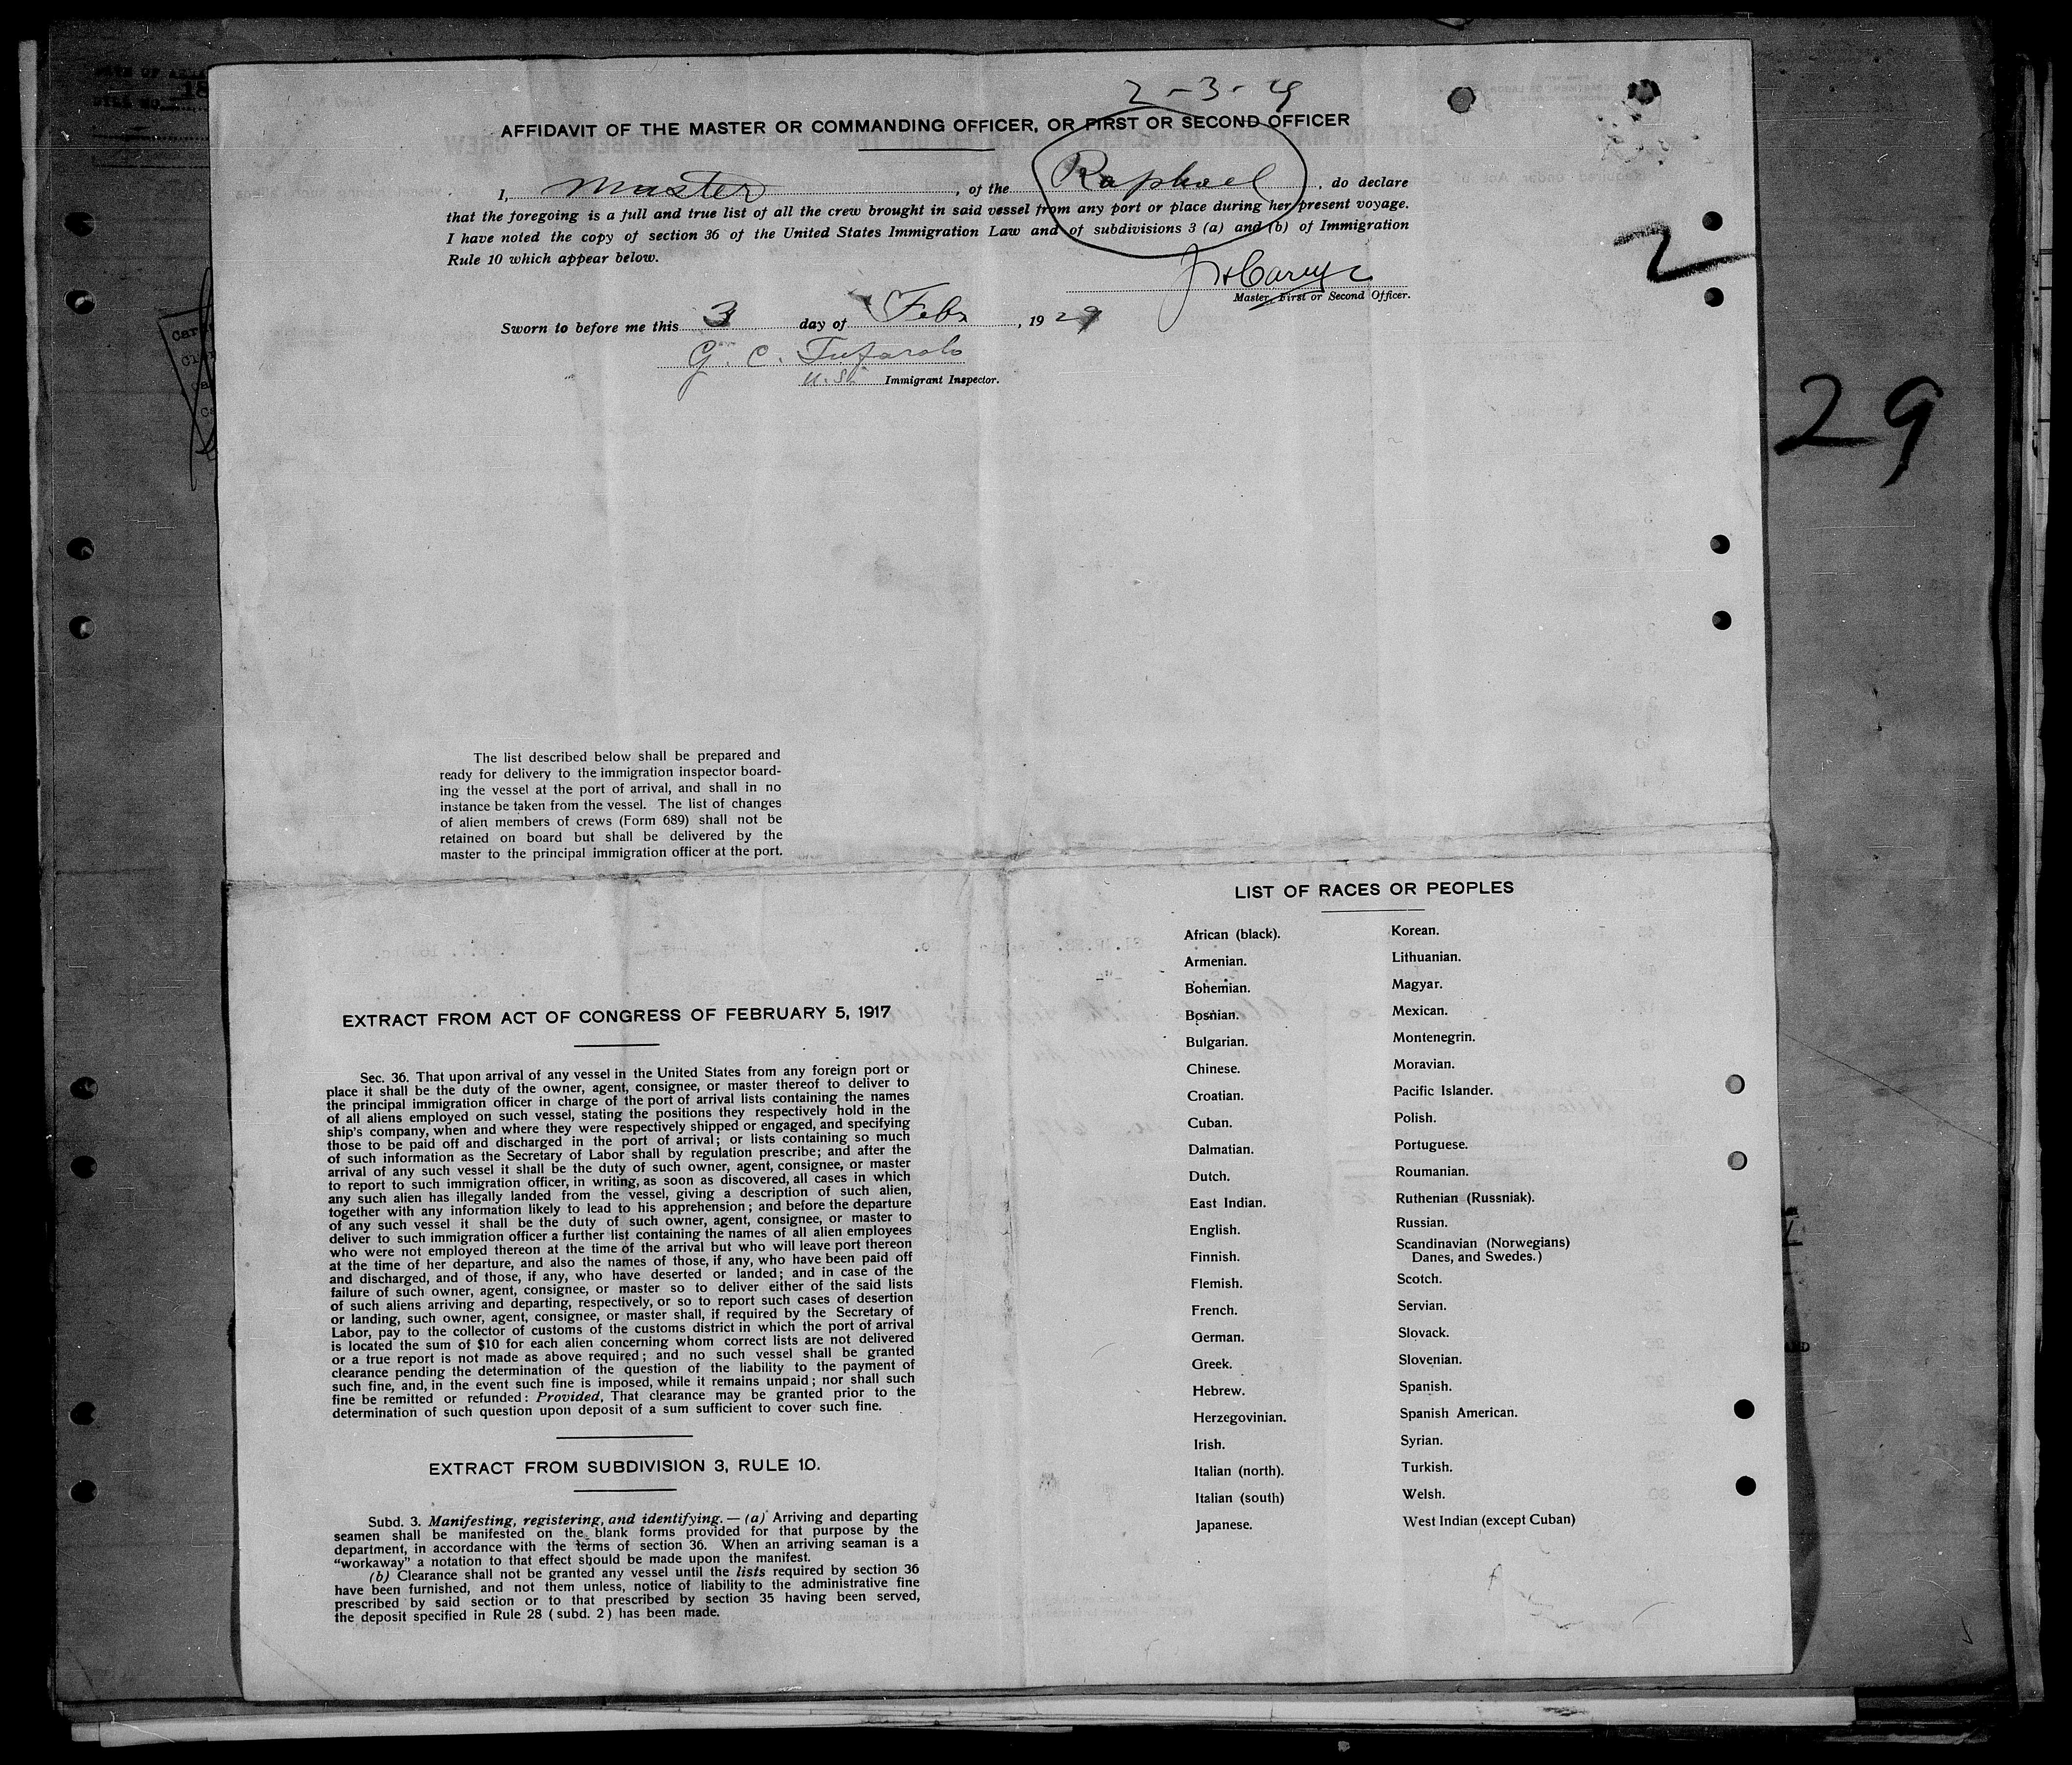 2-3-29
AFFIDAVIT OF THE MASTER OR COMMANDING OFFICER, OR FIRST OR SECOND OFFICER
I, Master, of the Raphael, do declare
that the foregoing is a full and true list of all the crew brought in said vessel from any port or place during her present voyage.
I have noted the copy of section 36 of the United States Immigration Law and of subdivisions 3 (a) and (b) of Immigration
Rule 10 which appear below.
2
Master, First or Second Officer.
Sworn to before me this 3 day of Feby, 1929
G. C. Tufarolo
Immigrant Inspector.
29
The list described below shall be prepared and
ready for delivery to the immigration inspector board-
ing the vessel at the port of arrival, and shall in no
instance be taken from the vessel. The list of changes
of alien members of crews (Form 689) shall not be
retained on board but shall be delivered by the
master to the principal immigration officer at the port.
EXTRACT FROM ACT OF CONGRESS OF FEBRUARY 5, 1917
Sec. 36. That upon arrival of any vessel in the United States from any foreign port or
place it shall be the duty of the owner, agent, consignee, or master thereof to deliver to
the principal immigration officer in charge of the port of arrival lists containing the names
of all aliens employed on such vessel, stating the positions they respectively hold in the
ship's company, when and where they were respectively shipped or engaged, and specifying
those to be paid off and discharged in the port of arrival; or lists containing so much
of such information as the Secretary of Labor shall by regulation prescribe; and after the
arrival of any such vessel it shall be the duty of such owner, agent, consignee, or master
to report to such immigration officer, in writing, as soon as discovered, all cases in which
any such alien has illegally landed from the vessel, giving a description of such alien,
together with any information likely to lead to his apprehension; and before the departure
of any such vessel it shall be the duty of such owner, agent, consignee, or master to
deliver to such immigration officer a further list containing the names of all alien employees
who were not employed thereon at the time of the arrival but who will leave port thereon
at the time of her departure, and also the names of those, if any, who have been paid off
and discharged, and of those, if any, who have deserted or landed; and in case of the
failure of such owner, agent, consignee, or master so to deliver either of the said lists
of such aliens arriving and departing, respectively, or so to report such cases of desertion
or landing, such owner, agent, consignee, or master shall, if required by the Secretary of
Labor, pay to the collector of customs of the customs district in which the port of arrival
is located the sum of $10 for each alien concerning whom correct lists are not delivered
or a true report is not made as above required; and no such vessel shall be granted
clearance pending the determination of the question of the liability to the payment of
such fine, and, in the event such fine is imposed, while it remains unpaid; nor shall such
fine be remitted or refunded: Provided, That clearance may be granted prior to the
determination of such question upon deposit of a sum sufficient to cover such fine.
EXTRACT FROM SUBDIVISION 3, RULE 10.
Subd. 3. Manifesting, registering, and identifying.—(a) Arriving and departing
seamen shall be manifested on the blank forms provided for that purpose by the
department, in accordance with the terms of section 36. When an arriving seaman is a
"workaway" a notation to that effect should be made upon the manifest.
(b) Clearance shall not be granted any vessel until the lists required by section 36
have been furnished, and not them unless, notice of liability to the administrative fine
prescribed by said section or to that prescribed by section 35 having been served,
the deposit specified in Rule 28 (subd. 2) has been made.
LIST OF RACES OR PEOPLES
African (black).
Armenian.
Bohemian.
Bosnian.
Bulgarian.
Chinese.
Croatian.
Cuban.
Dalmatian.
Dutch.
East Indian.
English.
Finnish.
Flemish.
French.
German.
Greek.
Hebrew.
Herzegovinian.
Irish.
Italian (north).
Italian (south)
Japanese.
Korean.
Lithuanian.
Magyar.
Mexican.
Montenegrin.
Moravian.
Pacific Islander.
Polish.
Portuguese.
Roumanian.
Ruthenian (Russniak).
Russian.
Scandinavian (Norwegians)
Danes, and Swedes.)
Scotch.
Servian.
Slovack.
Slovenian.
Spanish.
Spanish American.
Syrian.
Turkish.
Welsh.
West Indian (except Cuban)